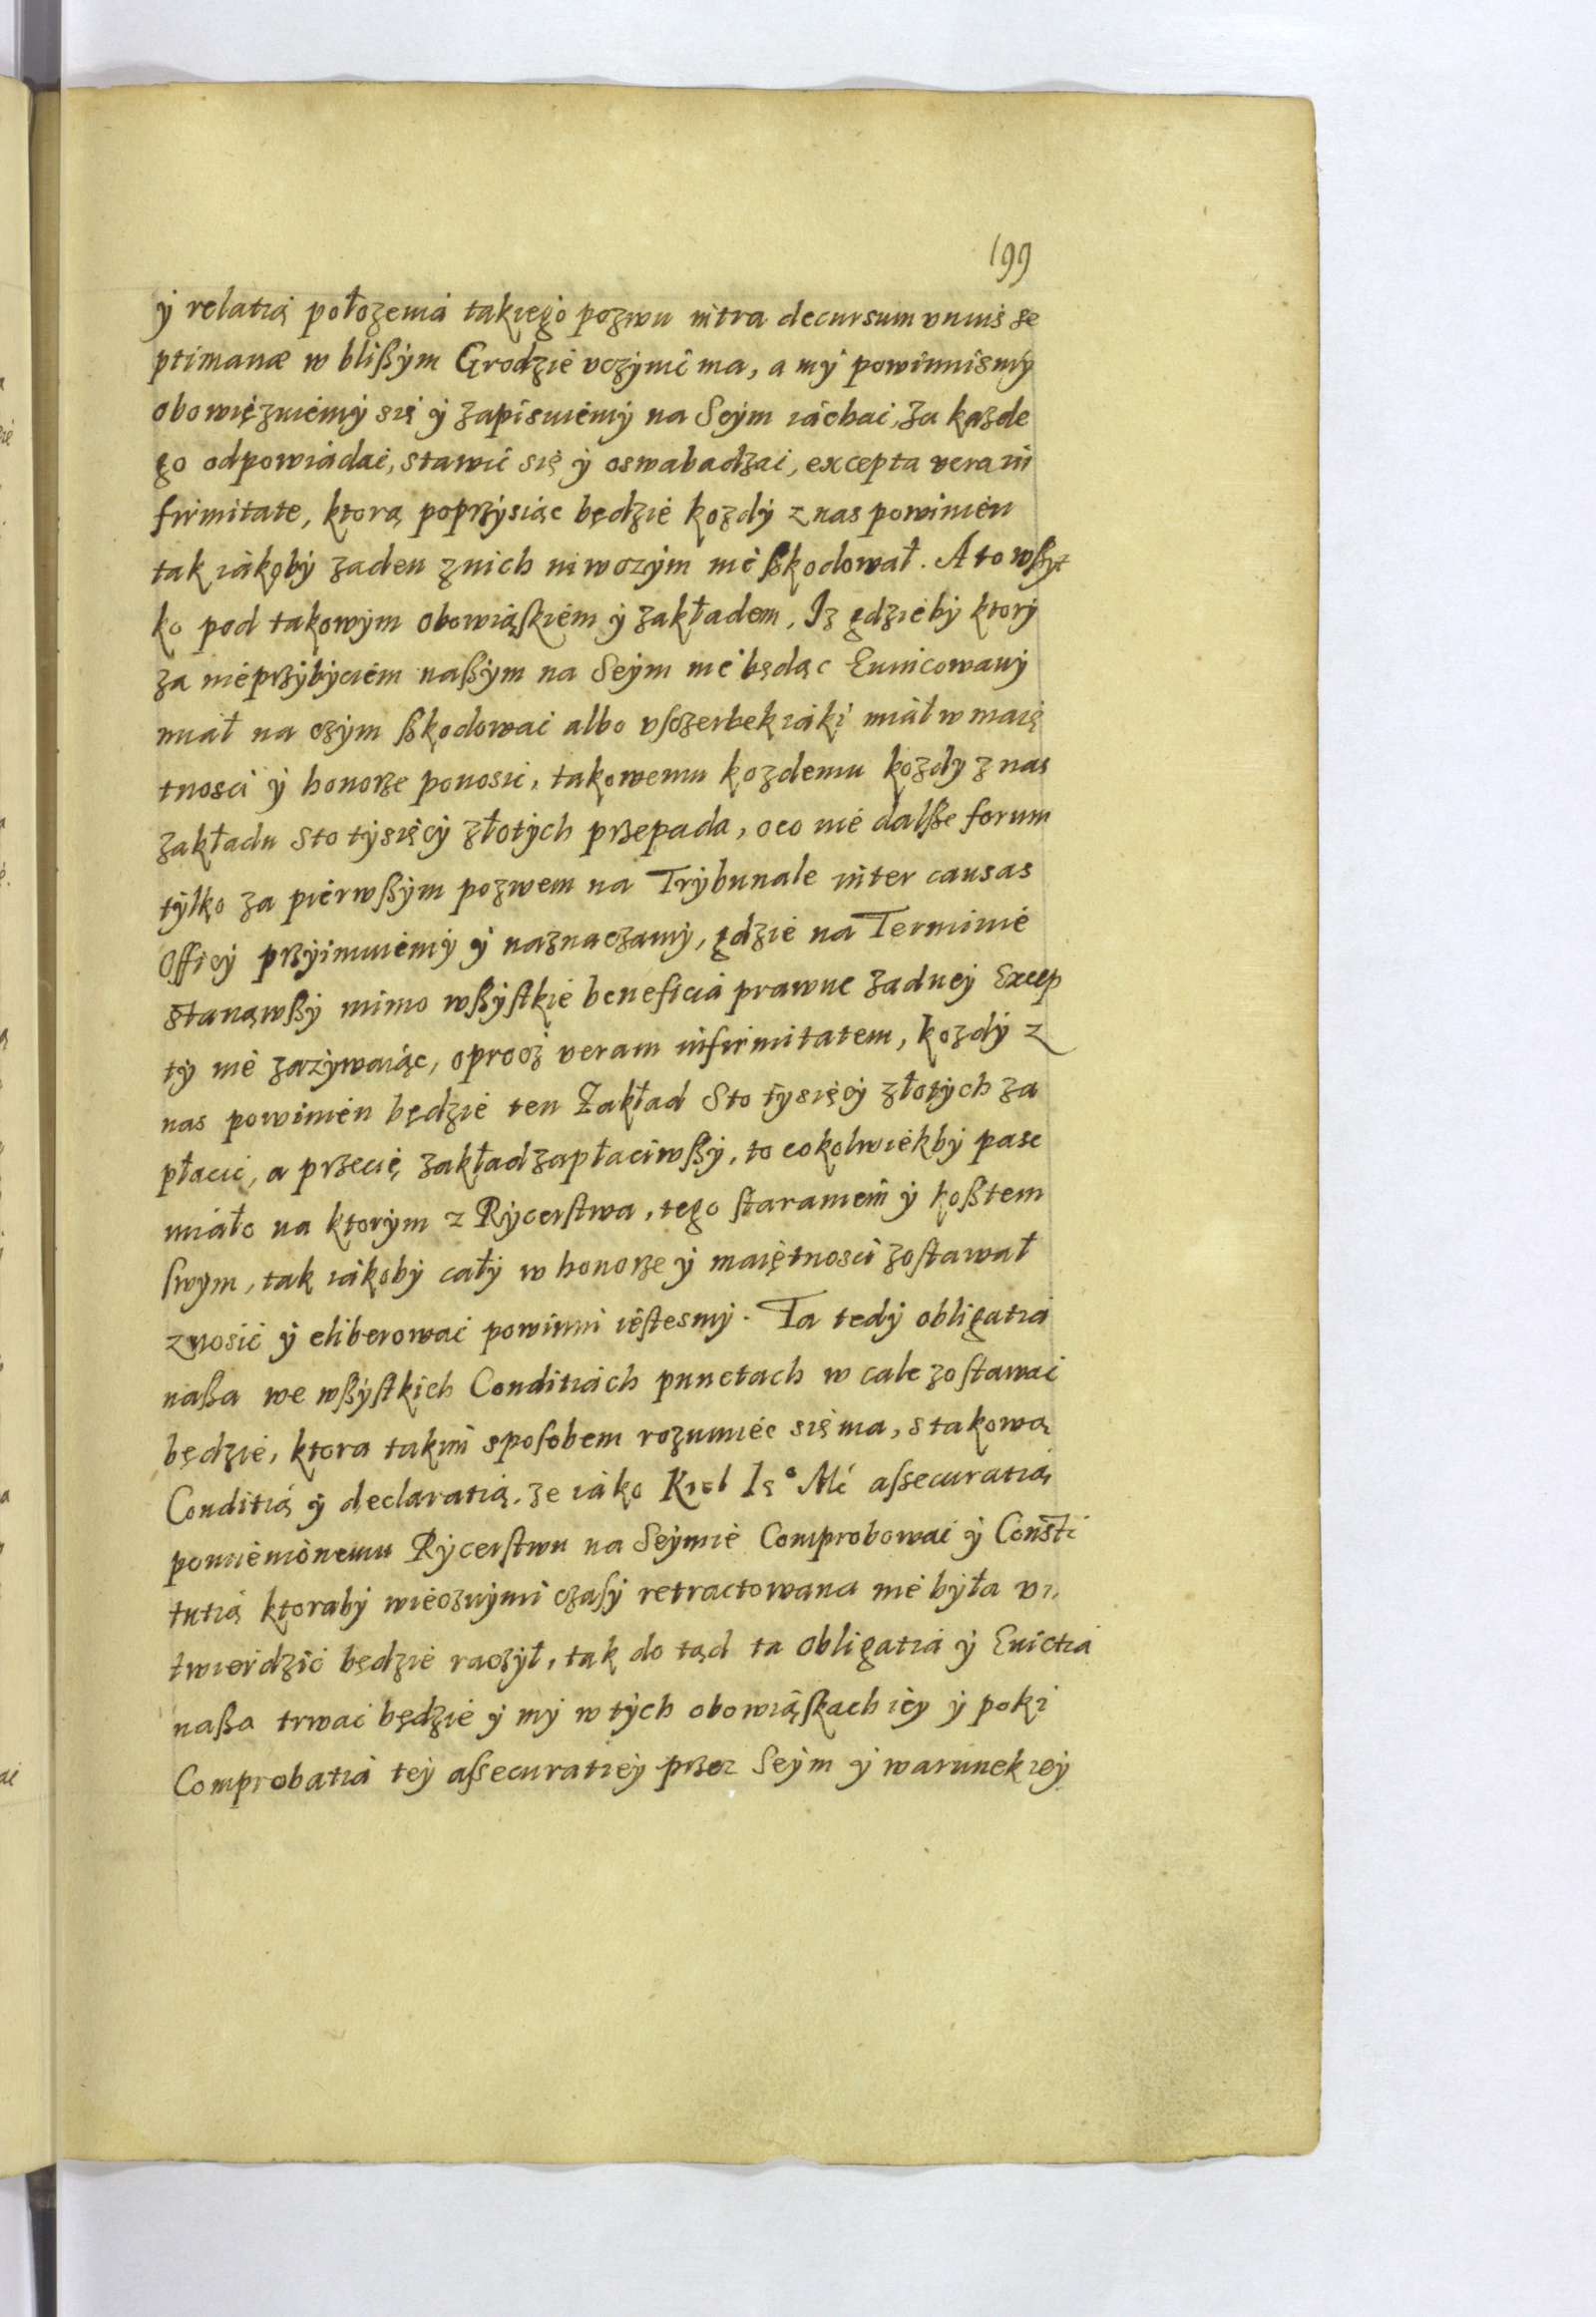 199
ÿ relatią położenia takiego pozwu intra decursum unius se
ptimanæ w blißÿm Grodzie vczÿnic ma, a mÿ powinnismÿ
obowięzuiemÿ się ÿ zapisuiemÿ na Seÿm iachac, za kazde
go odpowiadac, stawic się ÿ oswabadzac, excepta vera in
firmitate, ktorą poprzÿsiąc będzie kozdÿ z nas powinien
tak iakobÿ zaden z nich ni wczÿm nie ßkodował. A to wßÿt
ko pod takowÿm obowiąskiem ÿ zakładem, Iz gdziebÿ ktorÿ
za nieprzÿbÿciem naßÿm na Seÿm nie będąc Euincowanÿ
miał na czÿm ßkodowac albo vsczerbek iaki miał w maię
tnosci ÿ honorze ponosic, takowemu kozdemu kozdy z nas
zakładu sto tÿsięcÿ złotÿch przepada, oco nie dalsze forum
tÿlko za pierwßÿm pozwem na Trÿbunale inter causas
Officÿ przÿimuiemÿ ÿ naznaczamÿ, gdzie na Terminie
stanąwßÿ mimo wßÿstkie beneficia prawne zadneÿ Excep
tÿ nie zazÿwaiąc, oprocz veram infirmitatem, kozdÿ z
nas powinien będzie ten Zakład Sto tÿsięcÿ złotÿch za
płacic, a przecię zakład zapłaciwßÿ, to cokolwiekbÿ pasc
miało na ktorÿm z Rÿcerstwa, tego staraniem ÿ koßtem
swÿm, tak iakobÿ całÿ w honorze ÿ maiętnosci zostawał
znosic ÿ eliberowac powinni iestesmÿ. Ta tedÿ obligatia
naßa we wßÿstkich Conditiach punctach w cale zostawac
będzie, ktora takim sposobem rozumiec się ma, s takową
Conditią ÿ declaratią. ze iako Krol Ie° Mć assecuratią
pomienionemu Rÿcerstwu na Seÿmie Comprobowac ÿ Consti
tutią ktorabÿ wiecznÿmi czasÿ retractowana nie bÿła v
twierdzic będzie raczÿł, tak do tąd ta Obligatia ÿ Euictia
naßa trwac będzie ÿ mÿ w tÿch obowiąskach ieÿ ÿ poki
Comprobatia teÿ assecuratieÿ przez Seÿm ÿ warunek ieÿ